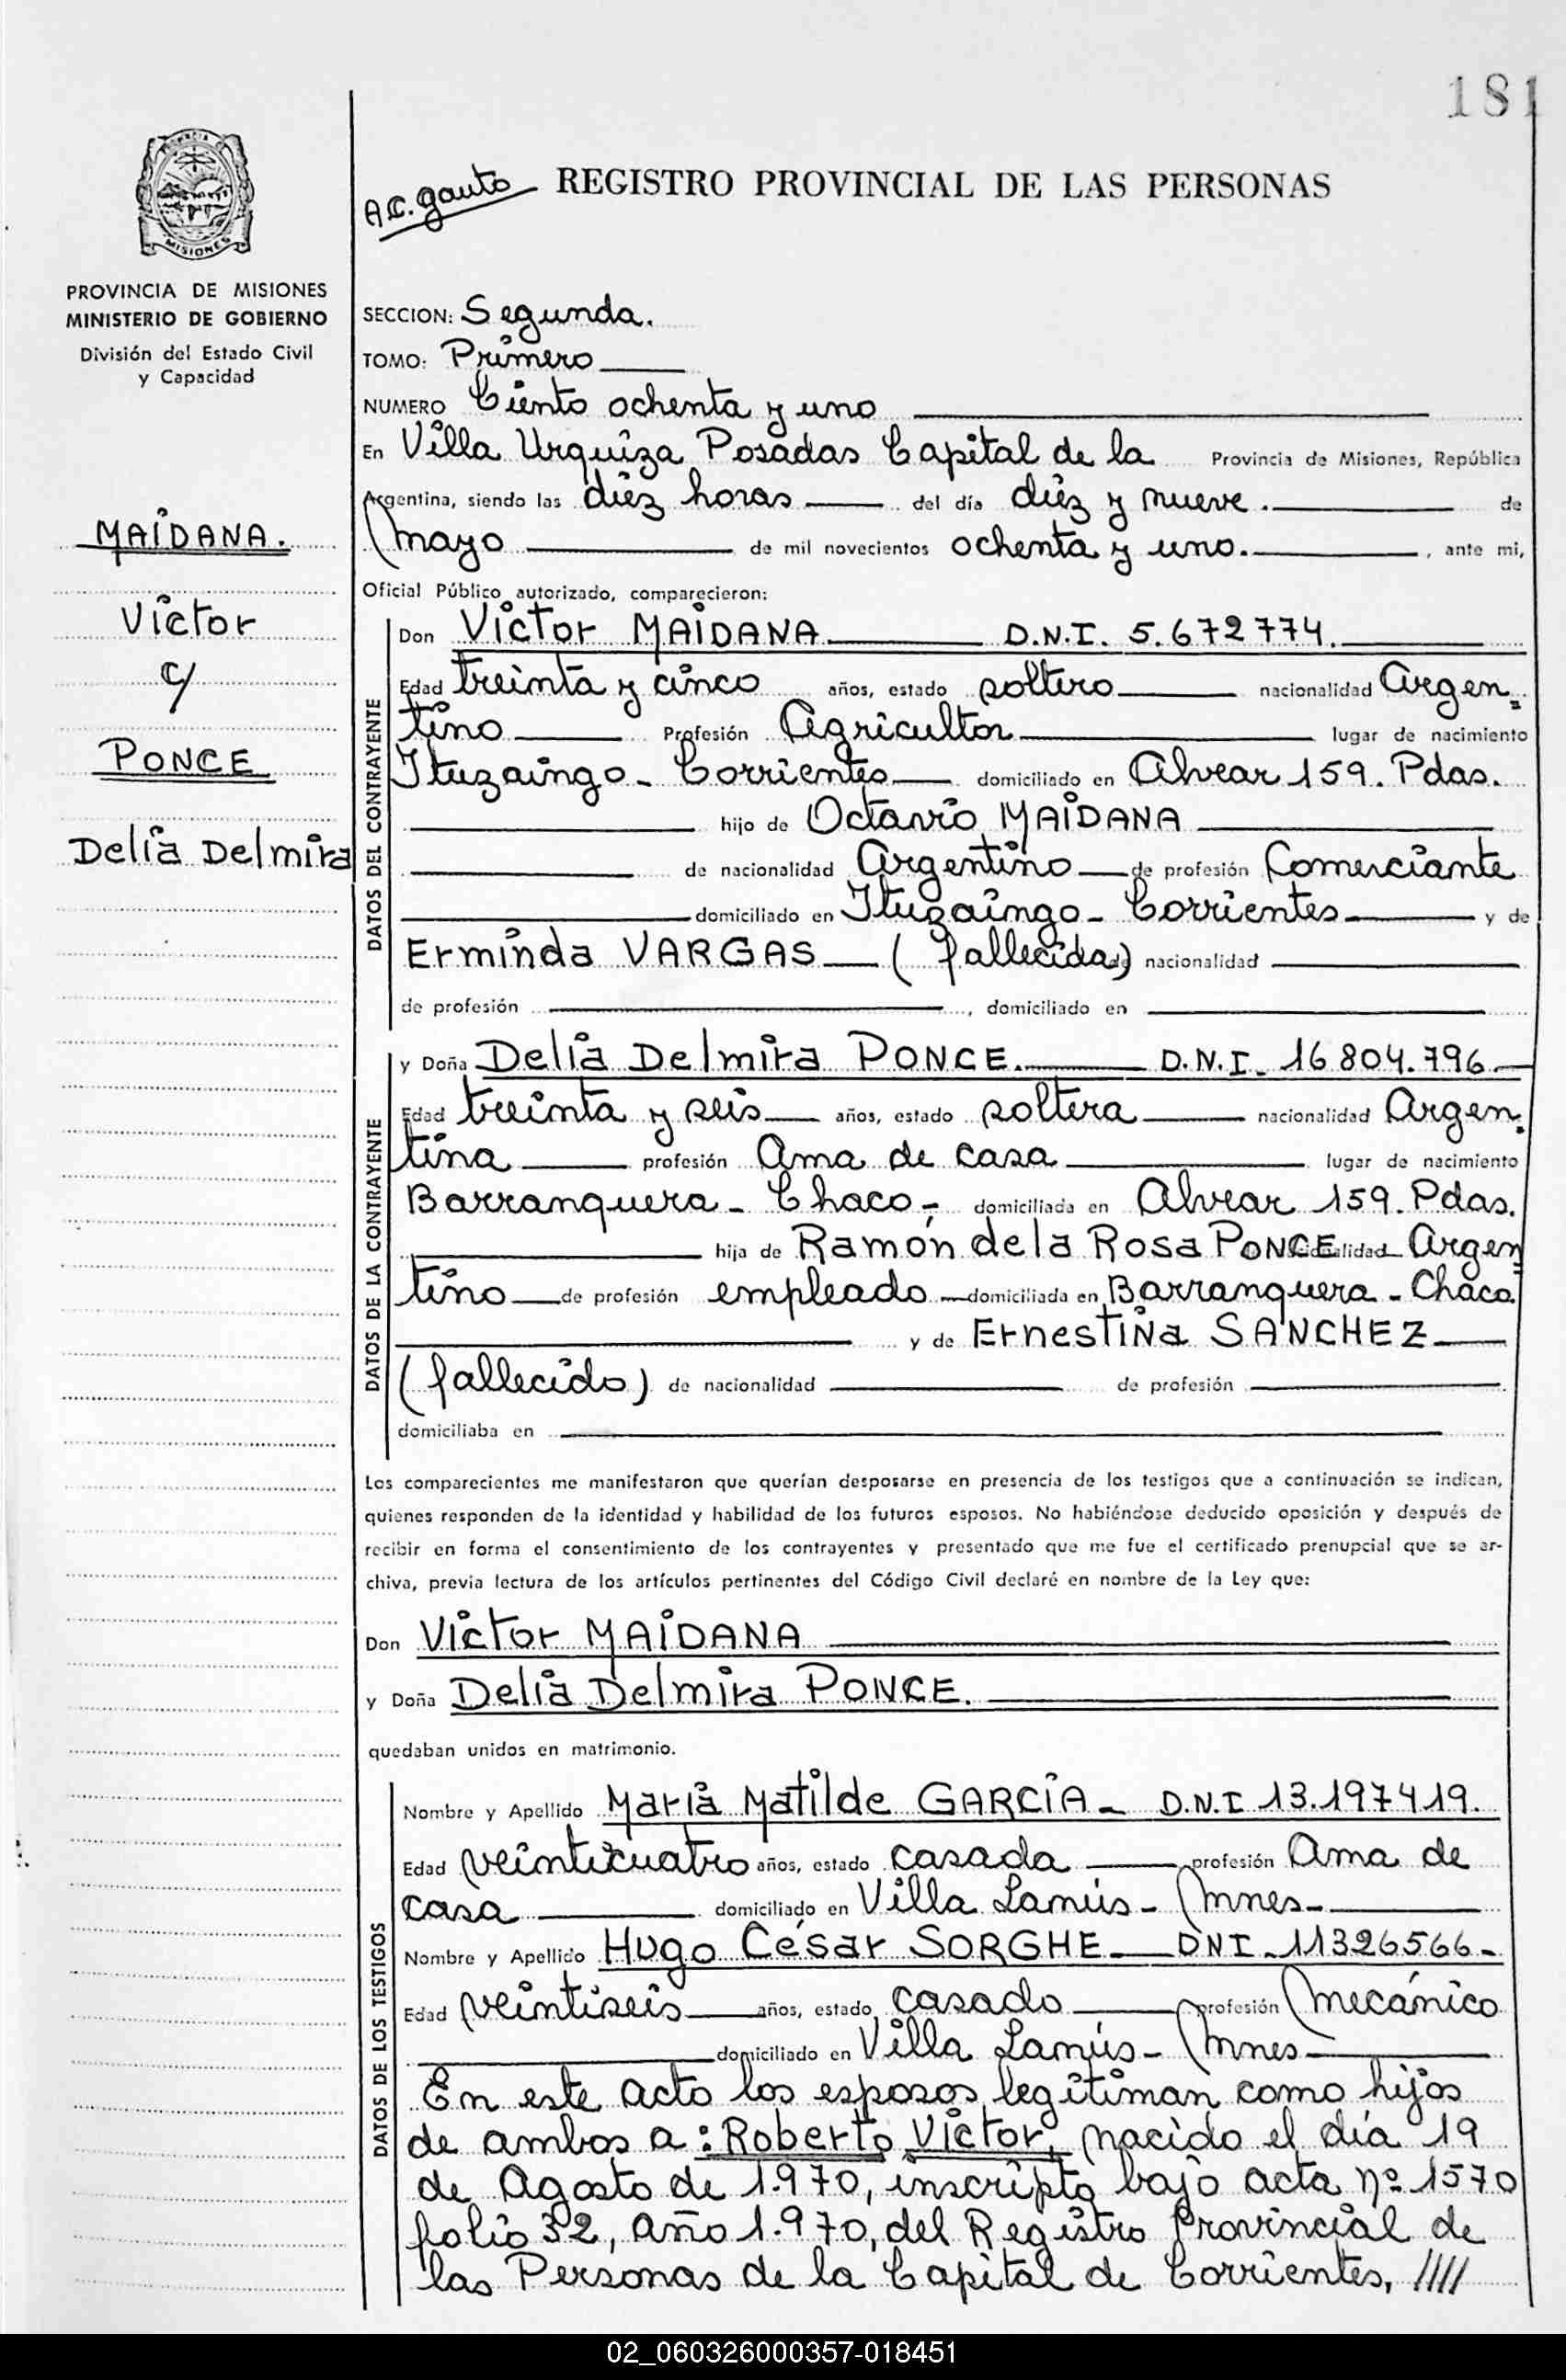 181
PROVINCIA DE
MISIONES
A.C. Gauto
REGISTRO PROVINCIAL DE LAS PERSONAS
PROVINCIA DE MISIONES
MINISTERIO DE GOBIERNO
División del Estado Civil
y Capacidad
MAIDANA.
Victor
c/
PONCE
Delia Delmira
SECCION: Segunda.
TOMO: Primero
NUMERO Ciento ochenta y uno
En Villa Urquiza Posadas Capital de la Provincia de Misiones, República
Argentina, siendo las diez horas del día diez y nueve. de
mayo de mil novecientos ochenta y uno. , ante mi,
Oficial Público autorizado, comparecieron:
DATOS DEL CONTRAYENTE
Don Victor MAIDANA D.N.I. 5.672774.
Edad treinta y cinco años, estado soltero nacionalidad Argen=
tino Profesión Agricultor lugar de nacimiento
Ituzaingo - Corrientes domiciliado en Alvear 159. Pdas.
hijo de Octavio MAIDANA
de nacionalidad Argentino de profesión Comerciante
domiciliado en Ituzaingo - Corrientes y de
Erminda VARGAS (fallecida) de nacionalidad
de profesión , domiciliado en
DATOS DE LA CONTRAYENTE
y Doña Delia Delmira PONCE. D.N.I. 16804.796
Edad treinta y seis años, estado soltera nacionalidad Argen=
tina profesión Ama de casa lugar de nacimiento
Barranquera - Chaco -, domiciliada en Alvear 159. Pdas.
hija de Ramón de la Rosa PONCE nacionalidad Argen=
tino de profesión empleado domiciliada en Barranquera - Chaco
y de Ernestina SANCHEZ
(fallecido) de nacionalidad de profesión
domiciliaba en
Los comparecientes me manifestaron que querían desposarse en presencia de los testigos que a continuación se indican,
quienes responden de la identidad y habilidad de los futuros esposos. No habiéndose deducido oposición y después de
recibir en forma el consentimiento de los contrayentes y presentado que me fue el certificado prenupcial que se ar-
chiva, previa lectura de los artículos pertinentes del Código Civil declaré en nombre de la Ley que:
Don Victor MAIDANA
y Doña Delia Delmira PONCE.
quedaban unidos en matrimonio.
DATOS DE LOS TESTIGOS
Nombre y Apellido Maria Matilde GARCÍA - D.N.I 13.197419.
Edad veinticuatro años, estado casada profesión Ama de
casa domiciliado en Villa Lanús - Mnes -
Nombre y Apellido Hugo César SORGHE DNI - 11326566 -
Edad veintiseis años, estado casado profesión mecánico
domiciliado en Villa Lanús - Mnes
En este acto los esposos legitiman como hijos
de ambos a: Roberto Victor, nacido el día 19
de Agosto de 1.970, inscripto bajo acta nº 1570
folio 32, año 1.970, del Registro Provincial de
las Personas de la Capital de Corrientes, ////
02_060326000357-018451